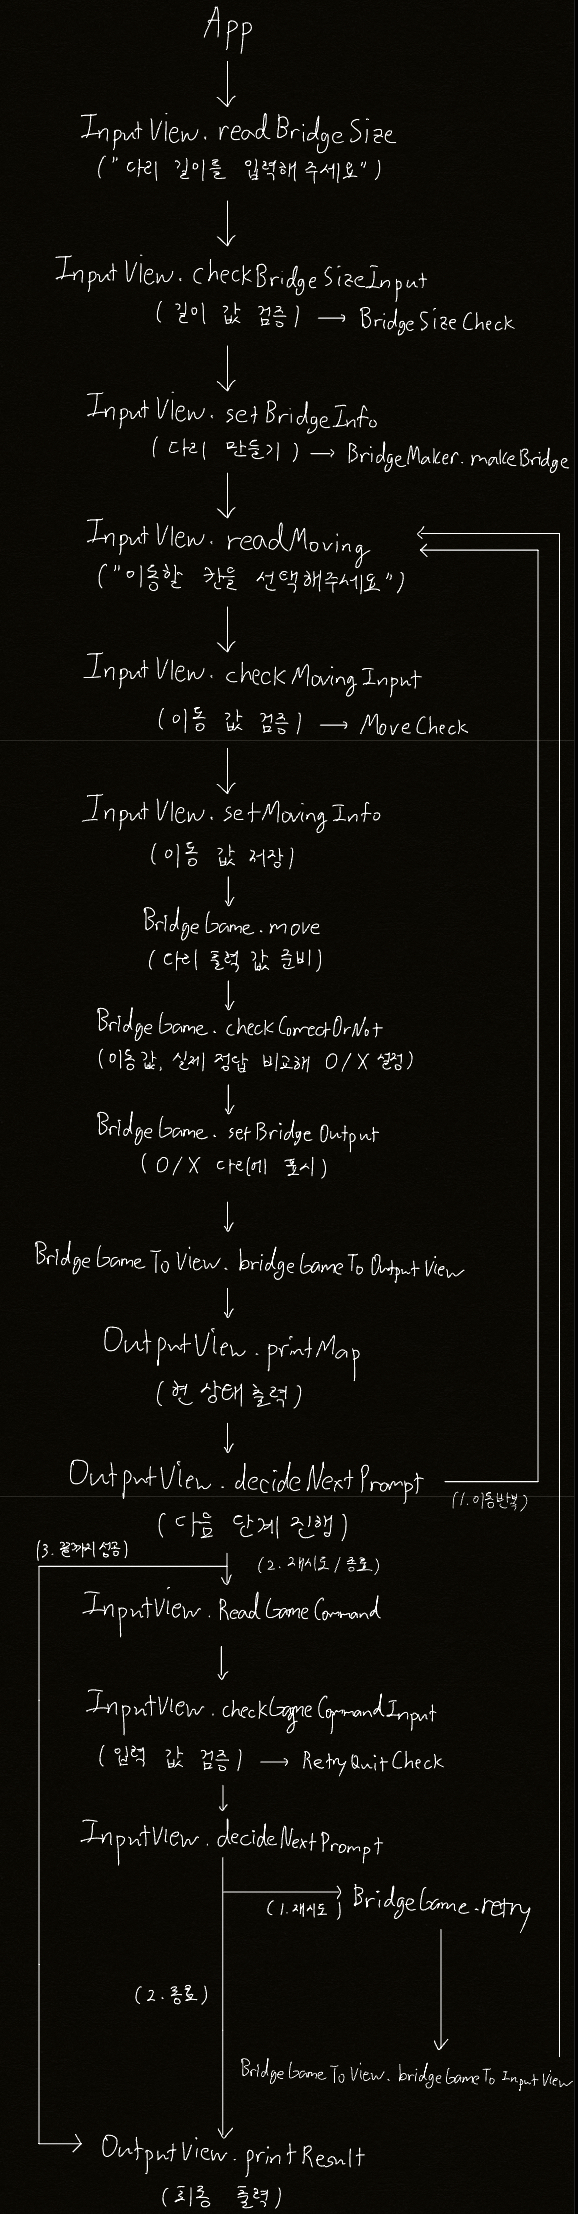 App
InputView.readBridgeSize
("다리 길이를 입력해 주세요")
InputView.checkBridgeSizeInput
(길이 값 검증) → BridgeSizeCheck
InputView.setBridgeInfo
(다리 만들기) → BridgeMaker.makeBridge
InputView.readMoving
("이동할 칸을 선택해주세요")
InputView.checkMovingInput
(이동 값 검증) → MoveCheck
InputView.setMovingInfo
(이동 값 저장)
BridgeGame.move
(다리 출력 값 준비)
BridgeGame.checkCorrectOrNot
(이동 값, 실제 정답 비교해 O/X 설정)
BridgeGame.setBridgeOutput
(O/X 다리에 표시)
BridgeGameToView.bridgeGameToOutputView
OutputView.printMap
(현 상태 출력)
OutputView.decideNextPrompt
(1.이동반복)
(다음 단계 진행)
(3.끝까지 성공)
(2.재시도/종료)
InputView.ReadGameCommand
InputView.checkGameCommandInput
(입력 값 검증) → RetryQuitCheck
InputView.decideNextPrompt
(1.재시도) BridgeGame.retry
(2.종료)
BridgeGameToView.bridgeGameToInputView
OutputView.printResult
(최종 출력)